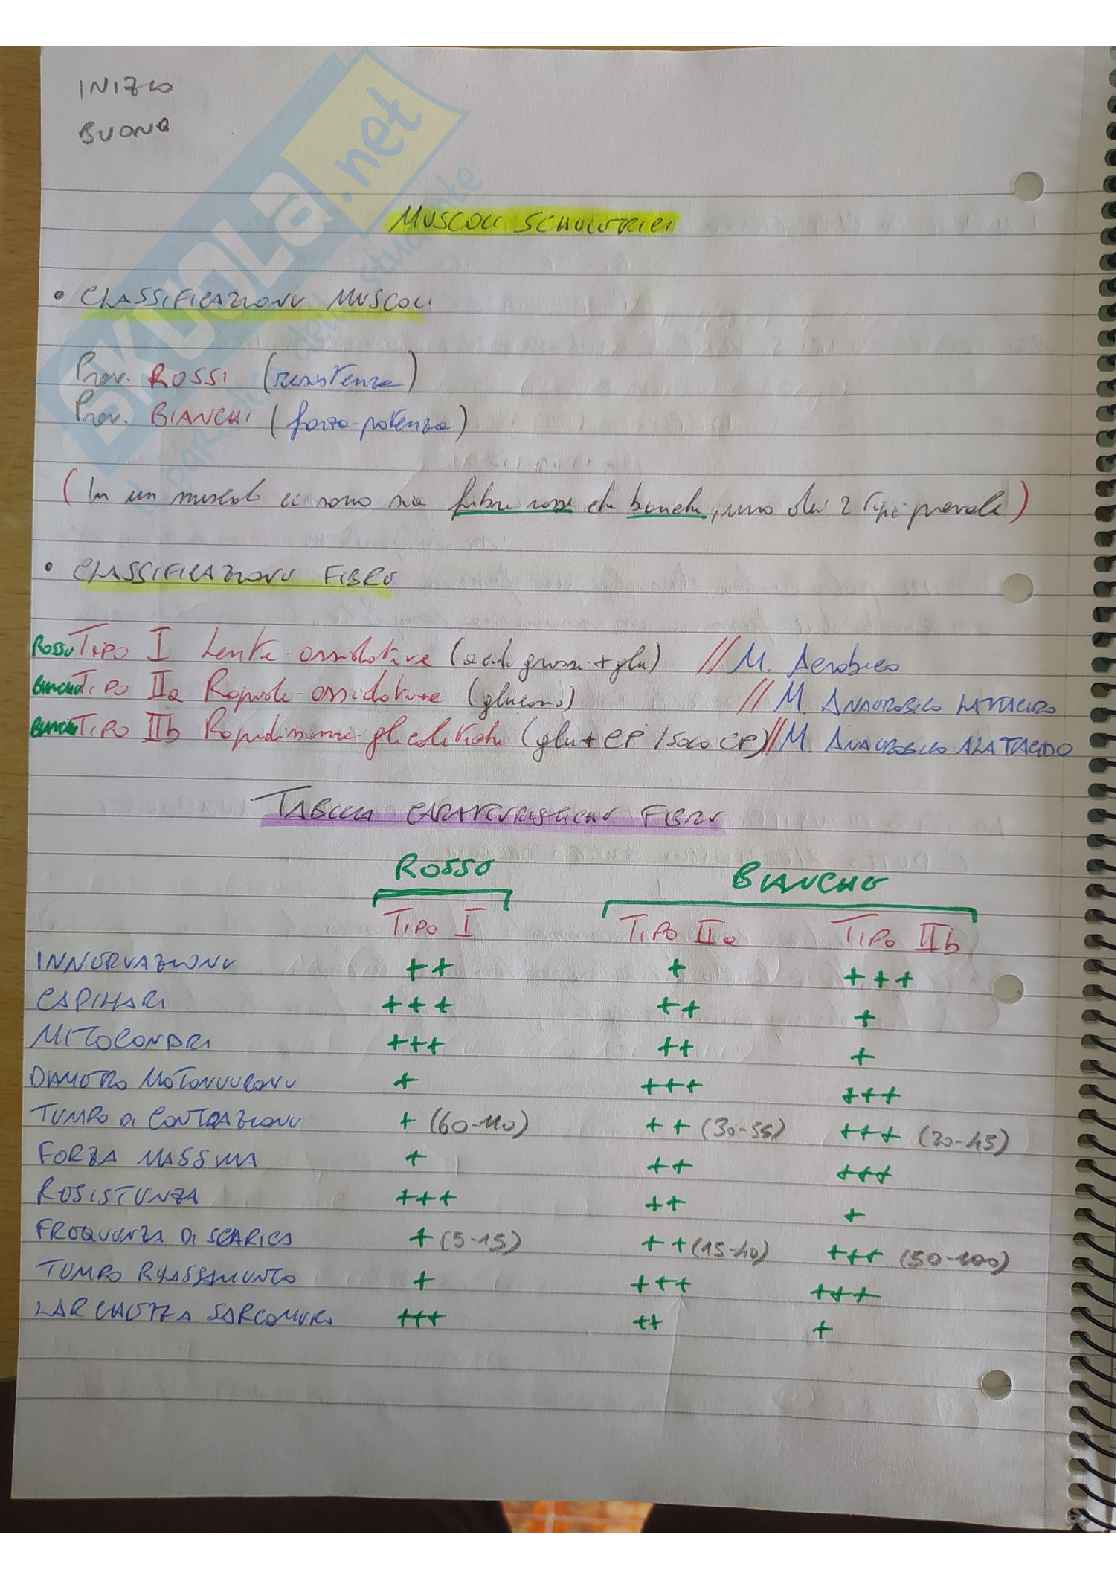 INIZIO
BUONO
SKUOLA.net
MUSCOLI SCHELETRICI
• CLASSIFICAZIONE MUSCOLI
Prev. ROSSI (resistenza)
Prev. BIANCHI (forza-potenza)
(In un muscolo ci sono sia fibre rosse che bianche, uno dei 2 tipi prevale)
• CLASSIFICAZIONE FIBRE
ROSSE TIPO I Lente ossidative (acidi grassi + glu) // M. Aerobico
BIANCHE TIPO IIa Rapide ossidative (glucosio) // M. ANAEROBICO LATTACIDO
BIANCHE TIPO IIb Rapidissime glicolitiche (glu + CP / solo CP) // M. ANAEROBICO ALATTACIDO
TABELLA CARATTERISTICHE FIBRE
ROSSE BIANCHE
TIPO I TIPO IIa TIPO IIb
INNERVAZIONE ++ + +++
CAPILLARI +++ ++ +
MITOCONDRI +++ ++ +
DIAMETRO MOTONEURONE + +++ +++
TEMPO DI CONTRAZIONE + (60-110) ++ (30-55) +++ (20-45)
FORZA MASSIMA + ++ +++
RESISTENZA +++ ++ +
FREQUENZA DI SCARICA + (5-15) ++ (15-40) +++ (50-100)
TEMPO RILASSAMENTO + +++ +++
LARGHEZZA SARCOMERI +++ ++ +